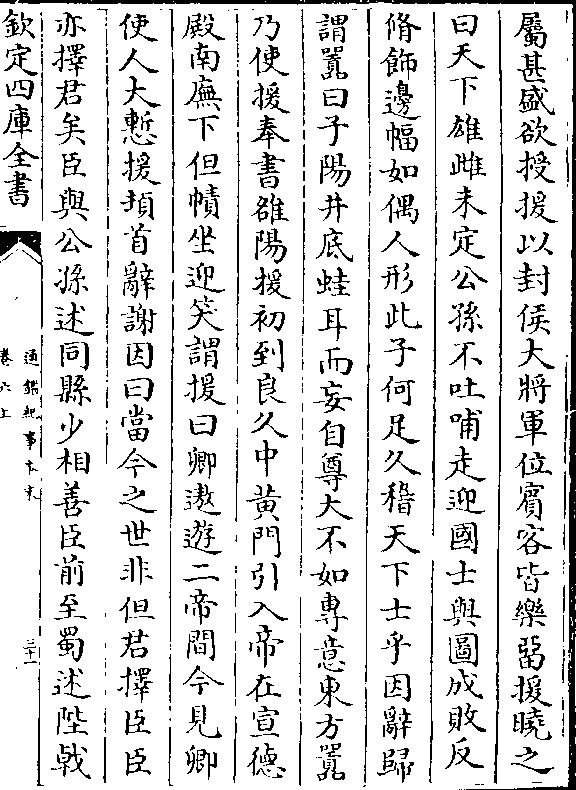 屬甚盛欲授援以封侯大將軍位賓客皆樂留援曉之
曰天下雄雌未定公孫不吐哺走迎國士與圖成敗反
脩飾邊幅如偶人形此子何足久稽天下士乎因辭歸
謂囂曰子陽井底蛙耳而妄自尊大不如專意東方囂
乃使援奉書雒陽援初到良久中黄門引入帝在宣德
殿南廡下但幘坐迎笑謂援曰卿遨遊二帝間今見卿
使人大慙援頓首辭謝因曰當今之世非但君擇臣臣
亦擇君矣臣與公孫述同縣少相善臣前至蜀述陛戟
欽定四庫全書
通鑑紀事本末
卷六上
三十一